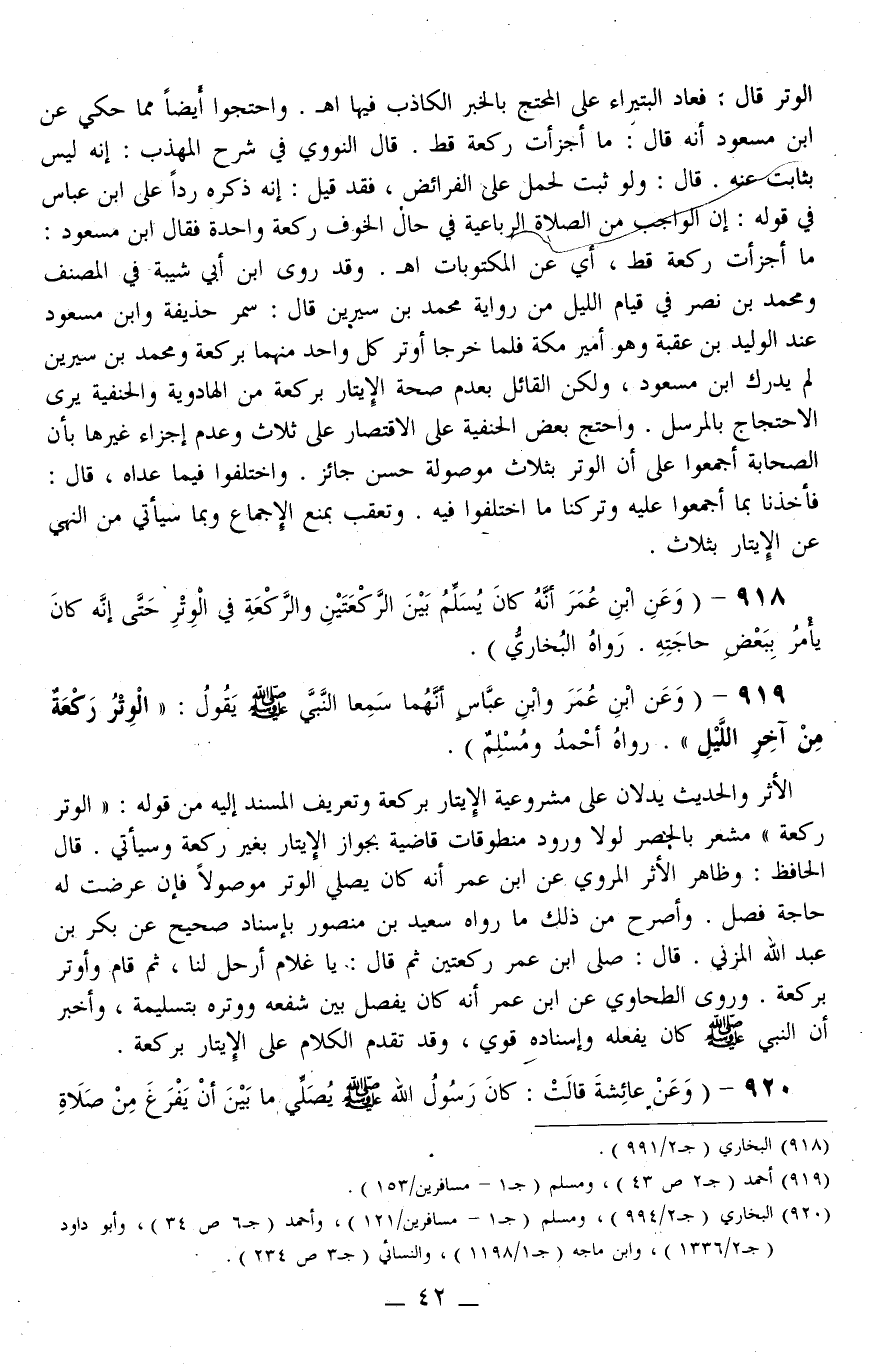 الوتر قال : فعاد البتيراء على المحتج بالخبر الكاذب فيها اهـ . واحتجوا أيضاً مما حكي عن
ابن مسعود أنه قال : ما أجزأت ركعة قط . قال النووي في شرح المهذب : إنه ليس
بثابت عنه . قال : ولو ثبت لحمل على الفرائض ، فقد قيل : إنه ذكره رداً على ابن عباس
في قوله : إن الواجب من الصلاة الرباعية في حال الخوف ركعة واحدة فقال ابن مسعود :
ما أجزأت ركعة قط ، أي عن المكتوبات اهـ . وقد روى ابن أبي شيبة في المصنف
ومحمد بن نصر في قيام الليل من رواية محمد بن سيرين قال : سمر حذيفة وابن مسعود
عند الوليد بن عقبة وهو أمير مكة فلما خرجا أوتر كل واحد منهما بركعة ومحمد بن سيرين
لم يدرك ابن مسعود ، ولكن القائل بعدم صحة الإيتار بركعة من الهادوية والحنفية يرى
الاحتجاج بالمرسل . واحتج بعض الحنفية على الاقتصار على ثلاث وعدم إجزاء غيرها بأن
الصحابة أجمعوا على أن الوتر بثلاث موصولة حسن جائز . واختلفوا فيما عداه ، قال :
فأخذنا بما أجمعوا عليه وتركنا ما اختلفوا فيه . وتعقب بمنع الإجماع وبما سيأتي من النهي
عن الإيتار بثلاث .
٩١٨ – ( وَعَنِ ابْنِ عُمَرَ أنَّهُ كانَ يُسَلِّمُ بَيْنَ الرَّكْعَتَيْنِ والرَّكْعَةِ في الْوِتْرِ حَتَّى إنَّه كانَ
يأْمرُ بِبَعْضِ حاجَتِهِ . رَواهُ البُخاريُّ ) .
٩١٩ – ( وَعَن ابْنِ عُمَرَ وابْنِ عبَّاسٍ أنَّهُما سَمِعا النَّبيَّ ﷺ يَقُولُ : « الْوِتْرُ رَكْعَةٌ
مِنْ آخِرِ اللَّيْلِ » . رواهُ أحْمدُ ومُسْلِمٌ ) .
الأثر والحديث يدلان على مشروعية الإيتار بركعة وتعريف المسند إليه من قوله : « الوتر
ركعة » مشعر بالحصر لولا ورود منطوقات قاضية بجواز الإيتار بغير ركعة وسيأتي . قال
الحافظ : وظاهر الأثر المروي عن ابن عمر أنه كان يصلي الوتر موصولاً فإن عرضت له
حاجة فصل . وأصرح من ذلك ما رواه سعيد بن منصور بإسناد صحيح عن بكر بن
عبد الله المزني . قال : صلى ابن عمر ركعتين ثم قال : يا غلام أرحل لنا ، ثم قام وأوتر
بركعة . وروى الطحاوي عن ابن عمر أنه كان يفصل بين شفعه ووتره بتسليمة ، وأخبر
أن النبي ﷺ كان يفعله وإسناده قوي ، وقد تقدم الكلام على الإيتار بركعة .
٩٢٠ – ( وَعَنْ عائِشةَ قالَتْ : كانَ رَسُولُ الله ﷺ يُصَلِّي ما بَيْنَ أنْ يَفْرغَ مِنْ صَلَاةِ
(٩١٨) البخاري ( جـ٩٩١/٢ ) .
(٩١٩) أحمد ( جـ٢ ص ٤٣ ) ، ومسلم ( جـ١ – مسافرين/١٥٣ ) .
(٩٢٠) البخاري ( جـ٩٩٤/٢ ) ، ومسلم ( جـ١ – مسافرين/١٢١ ) ، وأحمد ( جـ٦ ص ٣٤ ) ، وأبو داود
( جـ١٣٣٦/٢ ) ، وابن ماجه ( جـ١١٩٨/١ ) ، والنسائي ( جـ٣ ص ٢٣٤ ) .
– ٤٢ –